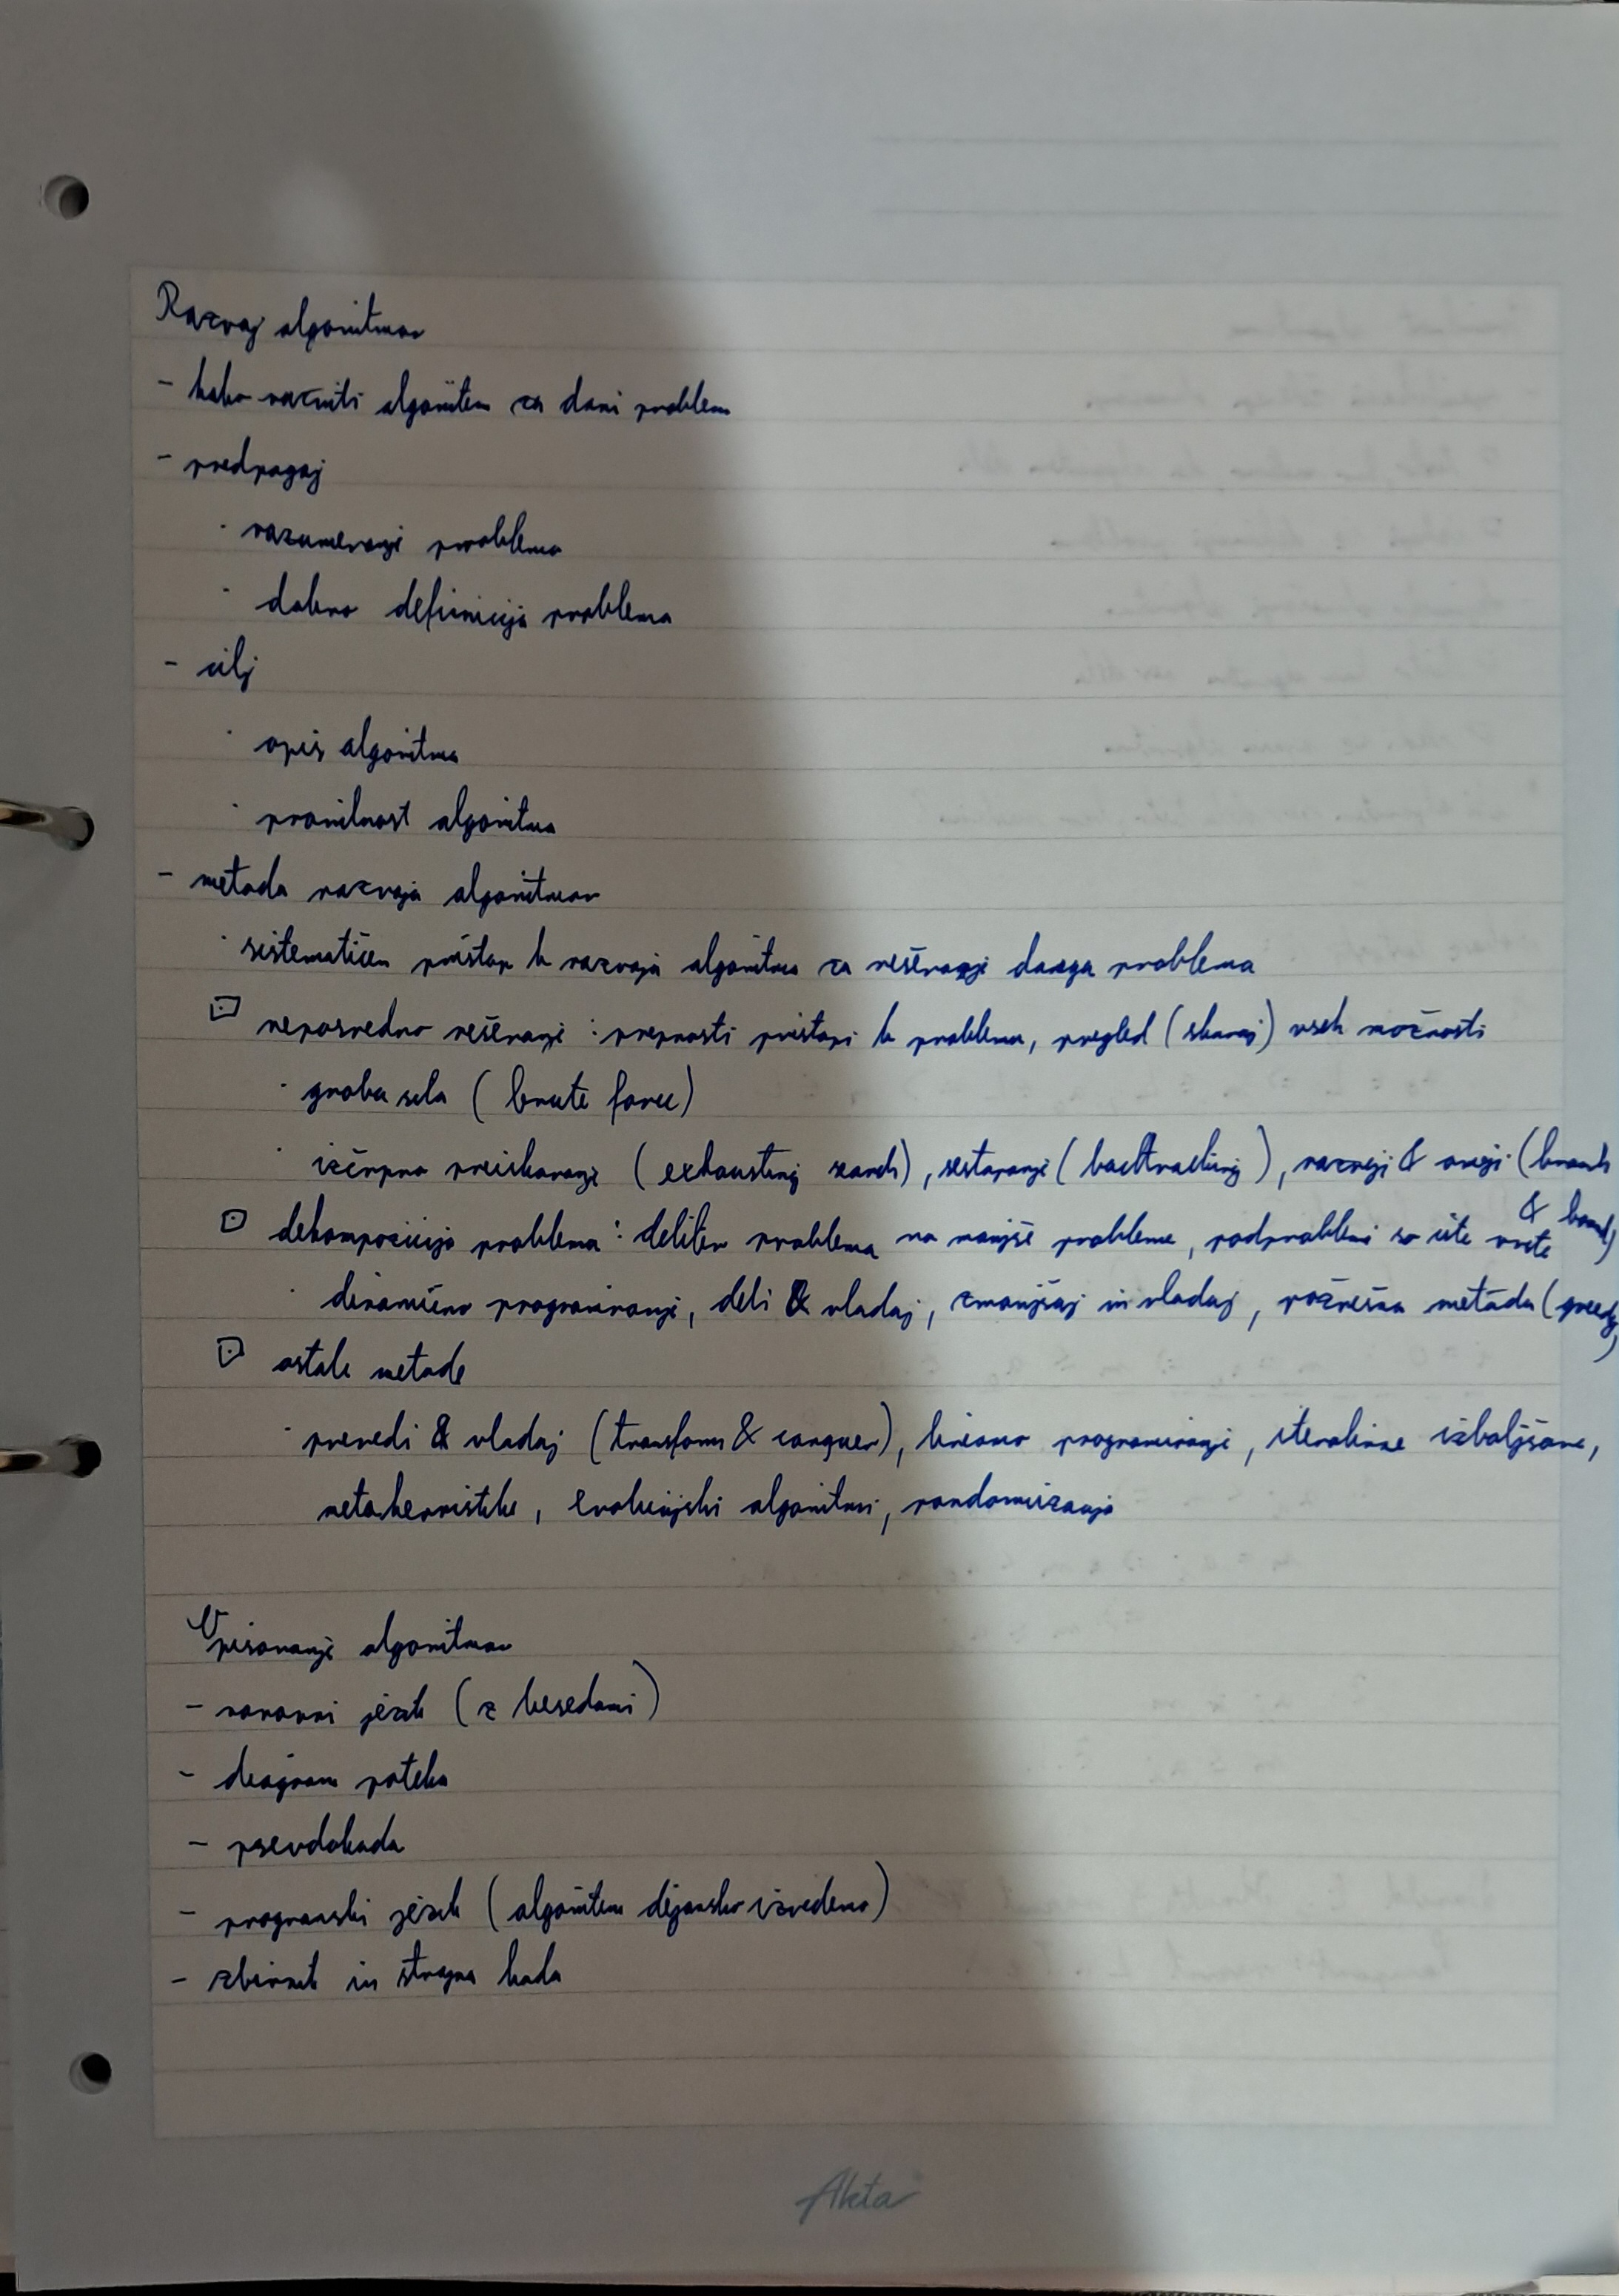 Razvoj algoritmov
- kako razviti algoritem za dani problem
- predpogoj
· razumevanje problema
· dobra definicija problema
- cilj
· opis algoritma
· pravilnost algoritma
- metoda razvoja algoritmov
· sistematičen pristop k razvoju algoritma za reševanje danega problema
neposredno reševanje : preprosti pristopi k problemu, pregled (skoraj) vseh možnosti
· groba sila (brute force)
· izčrpno preiskovanje (exhausting search), sestopanje (backtracking), razveji & omeji (branch
& bound)
dekompozicija problema : delitev problema na manjše probleme, podproblemi so iste vrste
· dinamično programiranje, deli & vladaj, zmanjšaj in vladaj, požrešna metoda (greedy)
ostale metode
· prevedi & vladaj (transform & conquer), linearno programiranje, iterativne izboljšave,
metahevristike, evolucijski algoritmi, randomizacija
Opisovanje algoritmov
- naravni jezik (z besedami)
- diagram poteka
- psevdokoda
- programski jezik (algoritem dejansko izvedemo)
- zbirnik in strojna koda
Akta